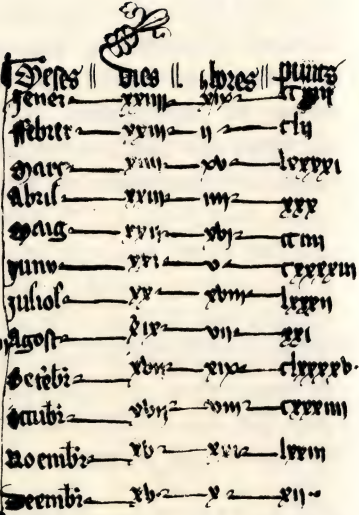 Meses || dies || hores || punts
Jener xxiiii xix
ffebrer xxiii ii clii
Març xv lxxxxi
Abril xxiii iiii xxx
Maig xxii xvi cciiii
Juny xxi v cxxxxiii
Juliol xx xviii lxxxii
Agost xix vii xxi
Setebr xviii xix clxxxxv
Octubr xvii viii cxxxiiii
Noembr xv xxi lxxiii
Deembr xv x xii